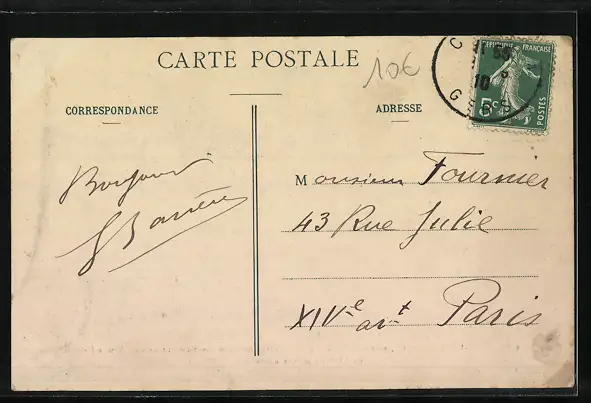 CARTE POSTALE
10€
RÉPUBLIQUE FRANÇAISE
POSTES
5c
10
GERS
CORRESPONDANCE
ADRESSE
Bonjour
Monsieur Fournier
43 Rue Julie
XIVe art Paris